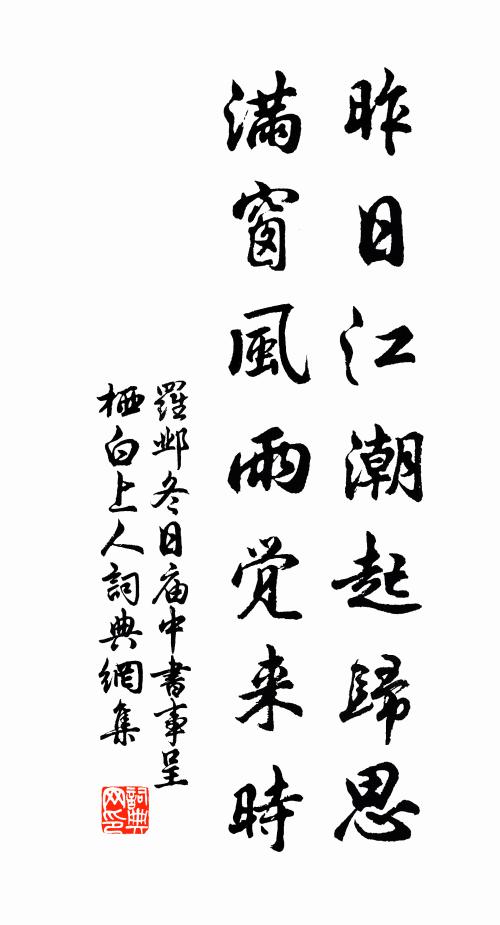 昨日江潮起歸思
滿窗風雨覺來時
羅鄴冬日庙中書事呈
栖白上人詞典網集
詞典
网印